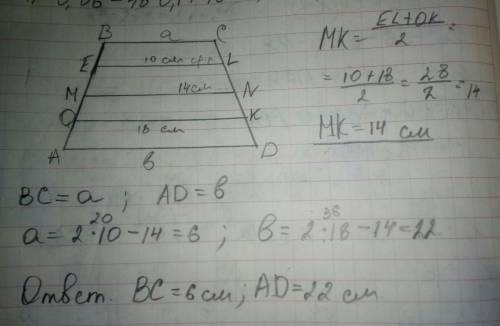 B a C
E 10 см ср.л L
M 14см N
O 18 см K
A в D
MK = EL+OK / 2 =
= 10+18 / 2 = 28 / 2 = 14
MK = 14 см
BC = a ; AD = в
a = 2·10 − 14 = 6 ; в = 2·18 − 14 = 22
20 36
Ответ. BC = 6 см; AD = 22 см